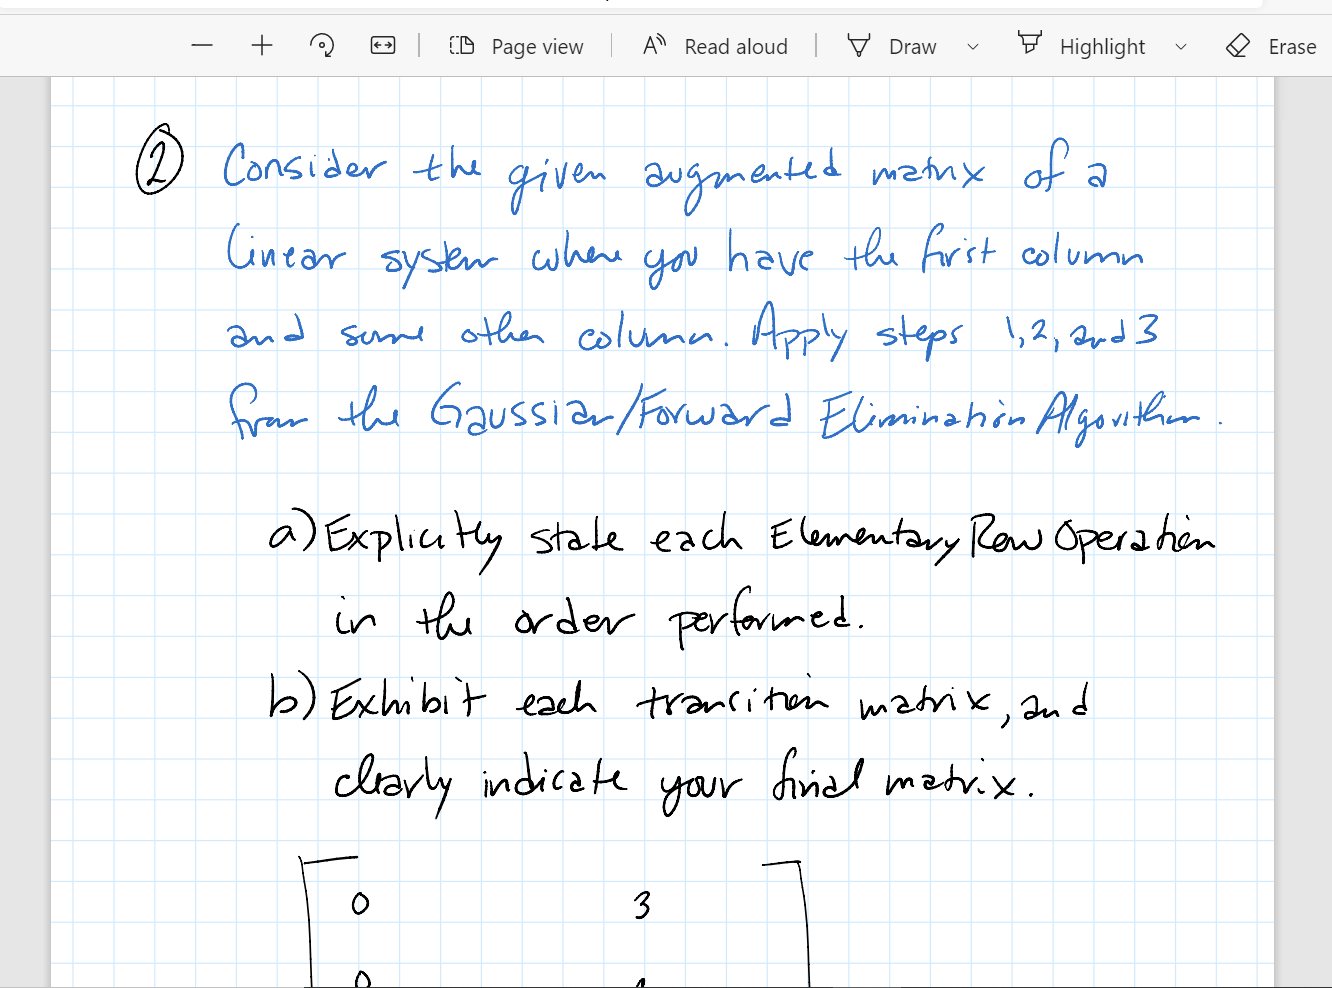 Page view
Read aloud
Draw
Highlight
Erase
2 Consider the given augmented matrix of a
linear system where you have the first column
and some other column. Apply steps 1, 2, and 3
from the Gaussian/Forward Elimination Algorithm.
a) Explicitly state each Elementary Row Operation
in the order performed.
b) Exhibit each transition matrix, and
clearly indicate your final matrix.
0 3
0